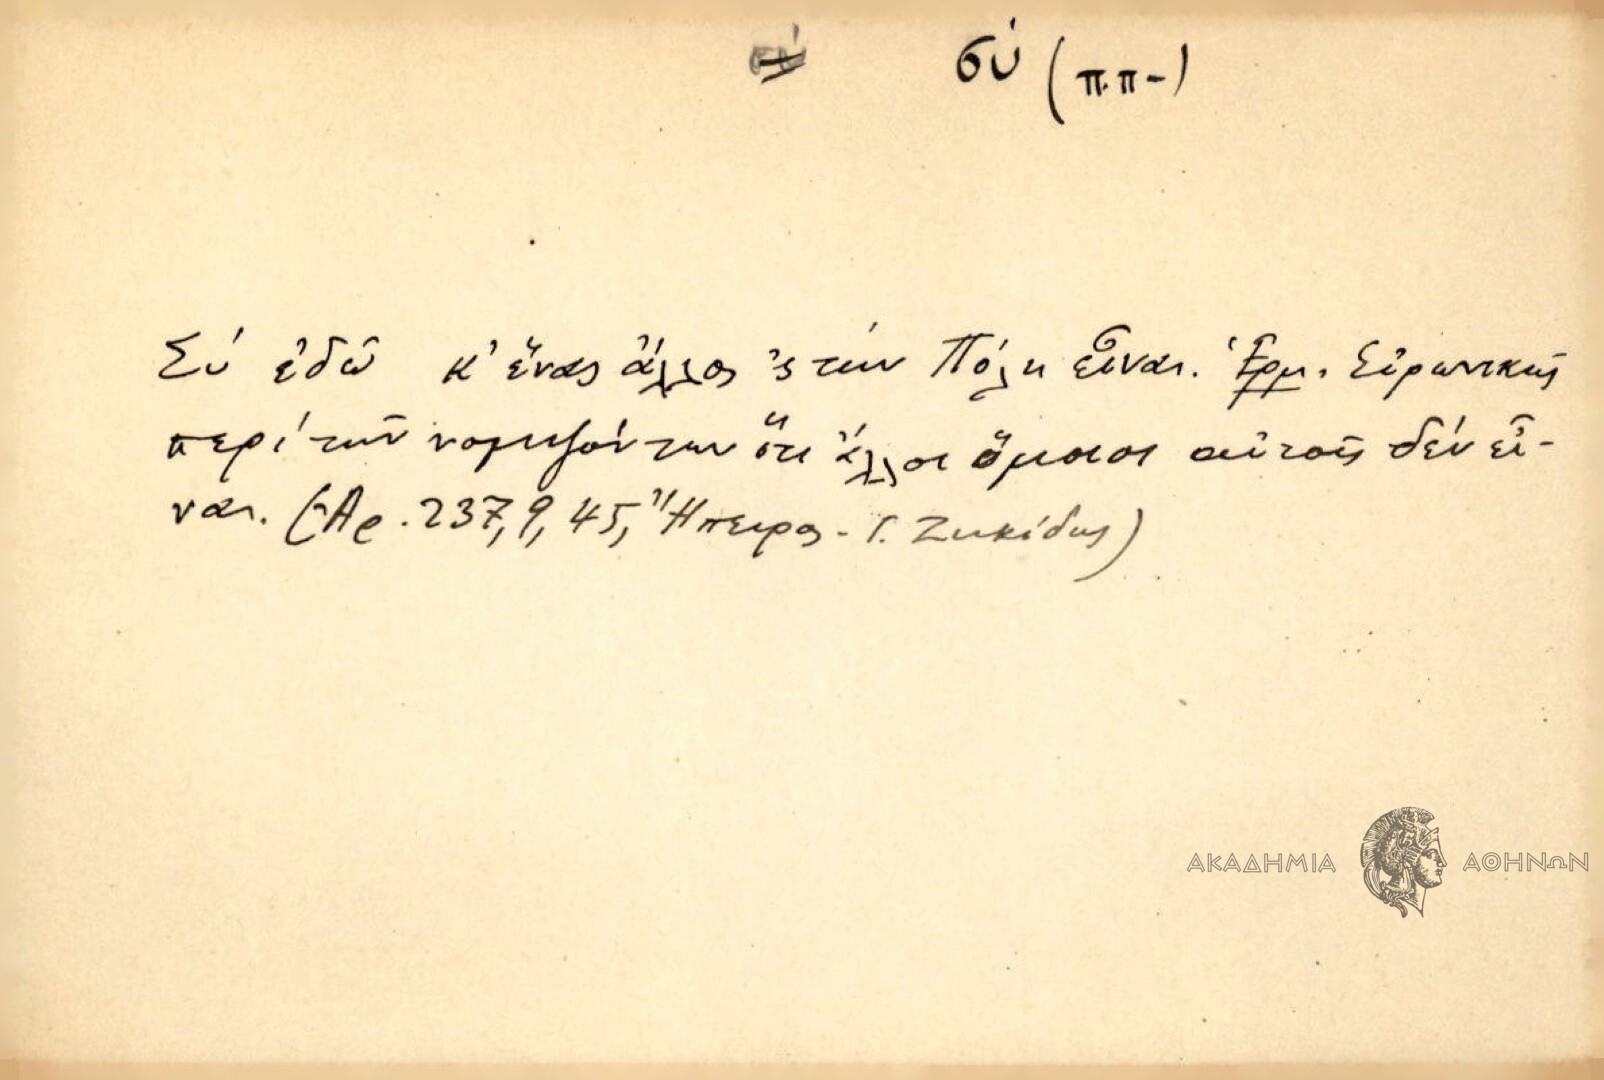 σύ (π.π-)
Σύ ἐδῶ κ' ἕνας ἄλλος 'ς τήν Πόλη εἶναι. Ἑρμ. Εἰρωνικῶς
περί τῶν νομιζόντων ὅτι ἄλλοι ὅμοιοι αὐτοῖς δέν εἶ-
ναι. (Ἀρ. 237, 9, 45, Ἤπειρος - Γ. Ζηκίδης)
ΑΚΑΔΗΜΙΑ ΑΘΗΝΩΝ